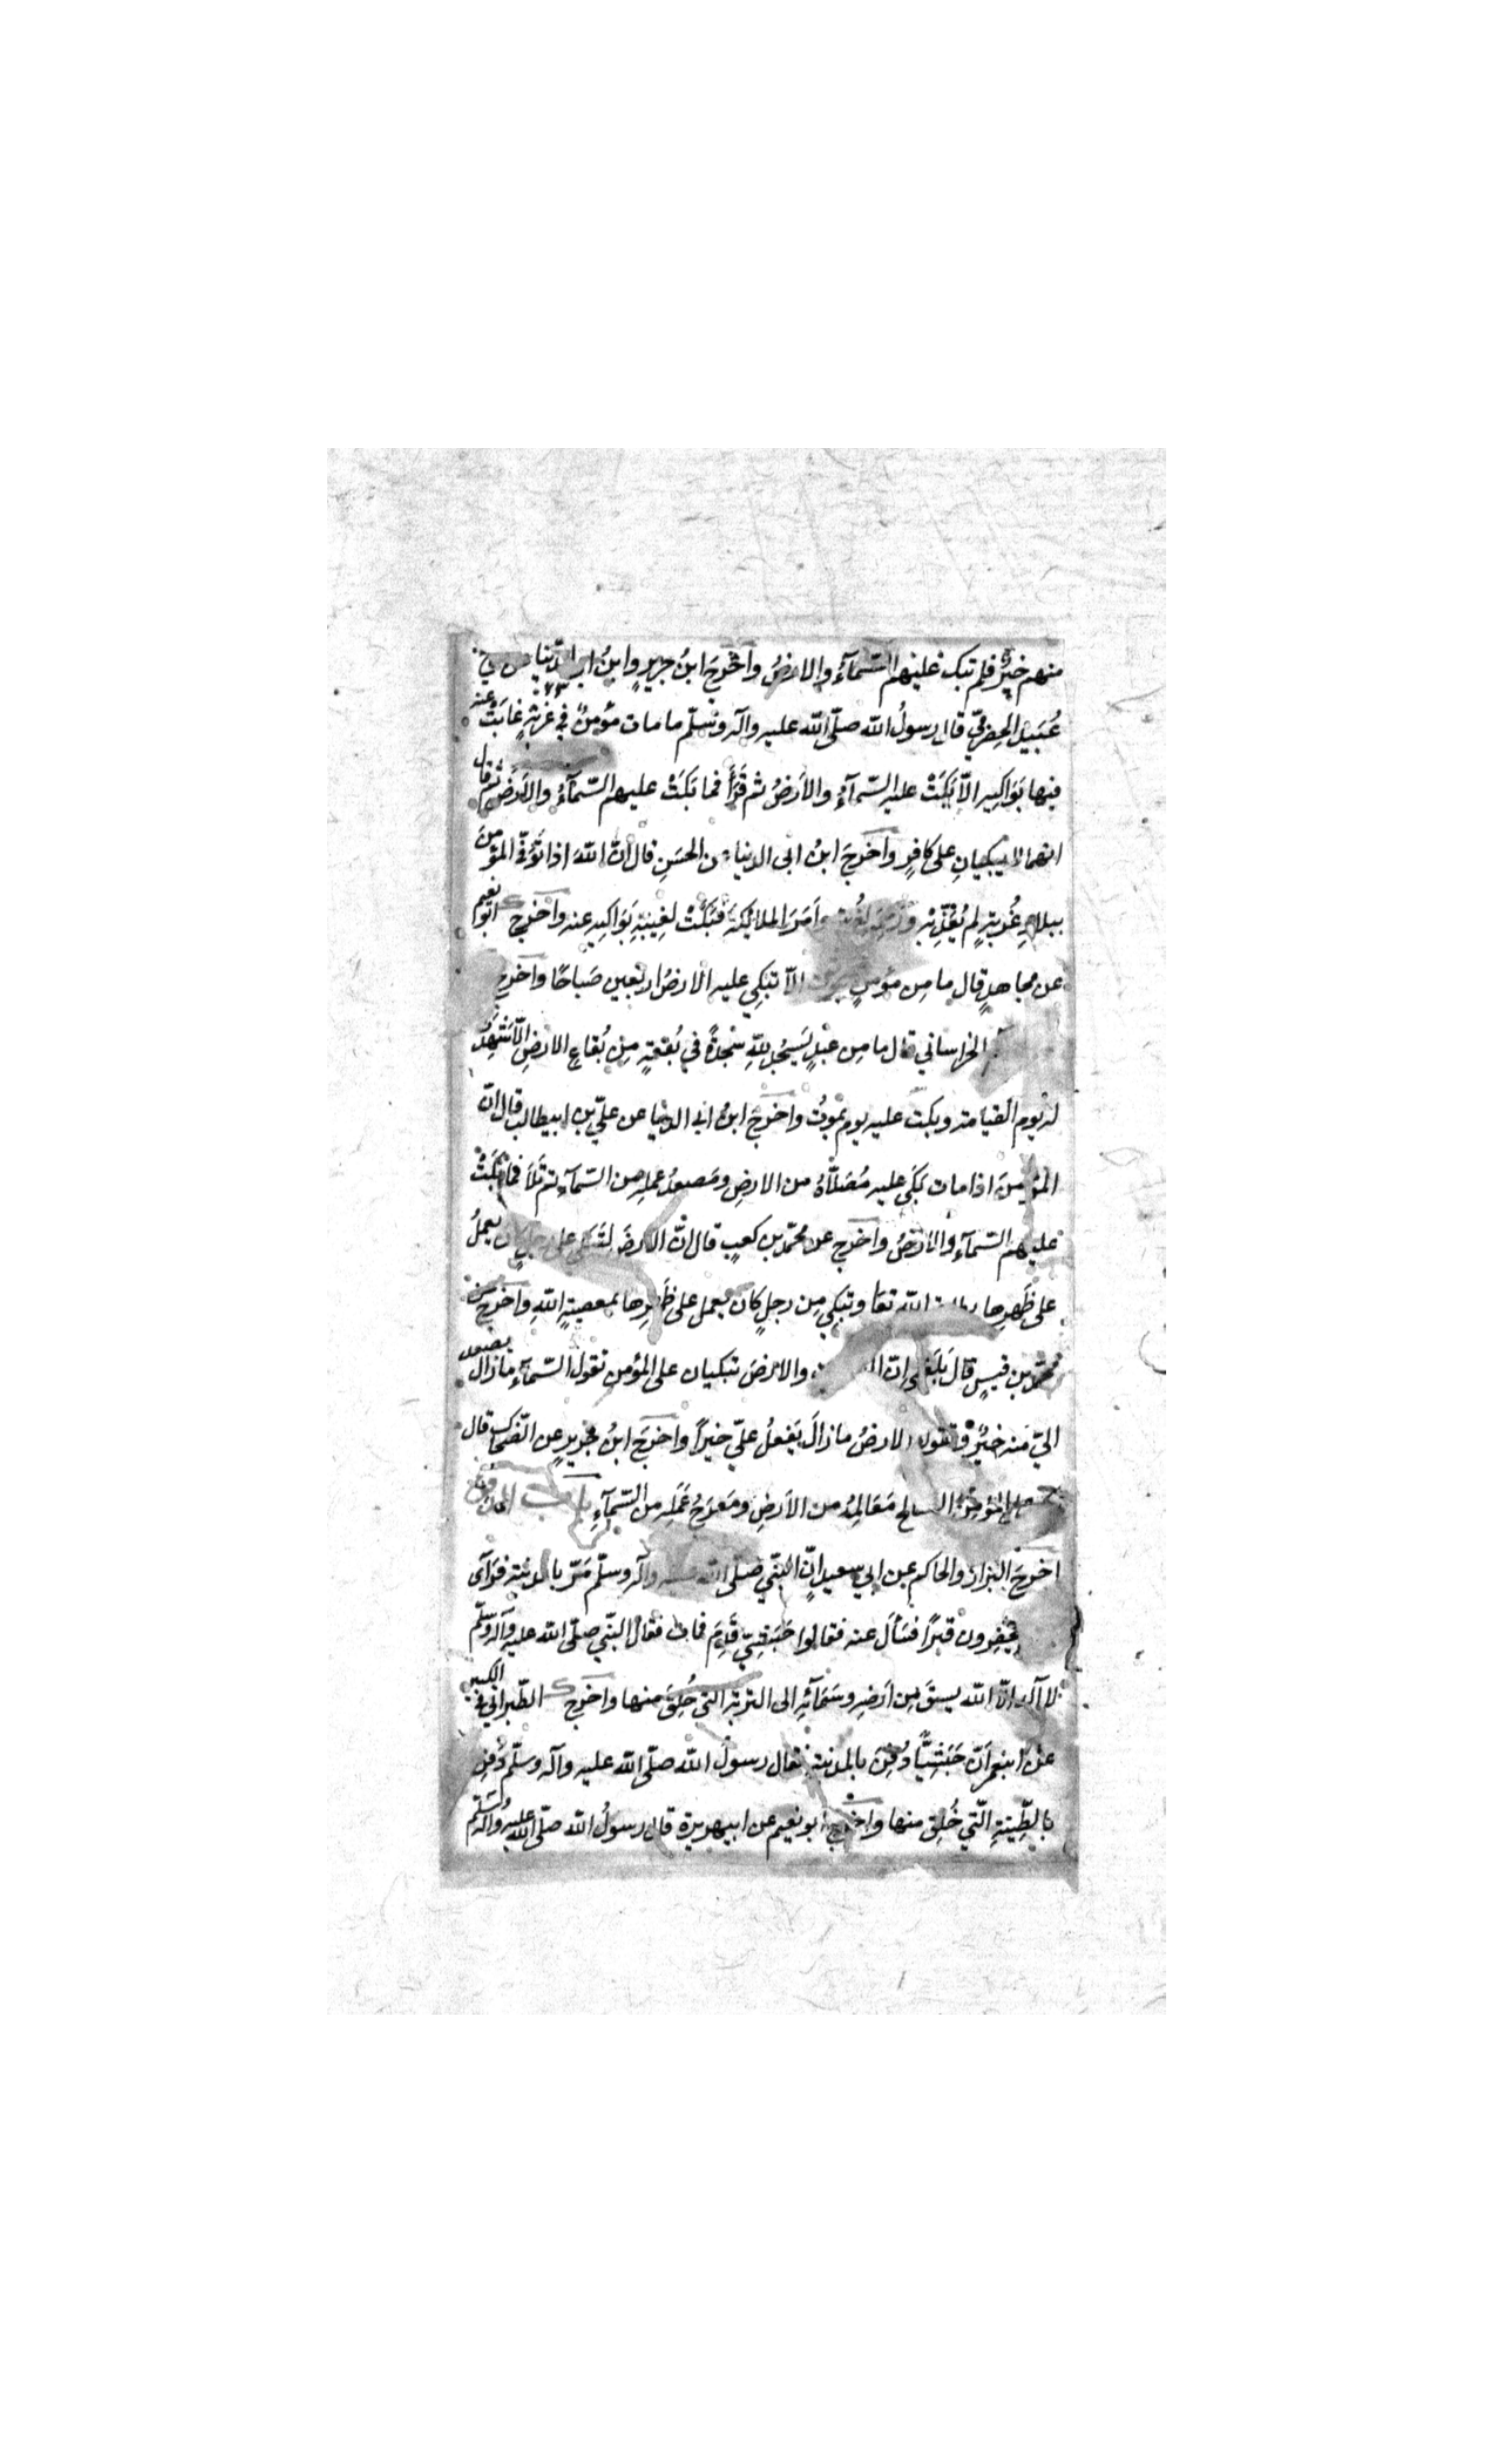 منهم خيرٌ فلم تبك عليهم السّمآءُ والارضُ واخرجَ ابنُ جريرٍ وابنُ ابي الدّنيا عن شريح بن
عُبَيل الحِضرميّ قال رسولُ الله صلّى الله عليه وآله وسلّم ما مات مؤمنٌ في غربةٍ غابَتْ عنه
فيها بَوَاكِيه الاّ بَكَتْ عليه السّمآءُ والاَرضُ ثم قَرَأَ فما بَكَتْ عليهم السّمآءُ والاَرضُ ثم قال
انهما لا يبكيانِ على كافرٍ واخرجَ ابنُ ابى الدنيا عن الحسَنِ قال انّ اللهَ اذا تَوَفّى المؤمنَ
ببلادِ غُربةٍ لم يُعَذِّبْه ورَحِمَه لغُربته وامَرَ الملائكةَ فبَكَتْ لغِيبَةِ بَوَاكِيه عنه واخرج ابو نعيم
عن مجاهدٍ قال ما مِن مؤمنٍ يموت الاّ تبكي عليه الارضُ اربعين صَباحًا واخرج
الخراساني قال ما مِن عبدٍ يَسجُد للهِ سَجدةً في بُقعةٍ مِن بُقاعِ الارضِ الاّ شَهِدَتْ
له يوم القيامة وبكت عليه يوم يموتُ واخرجَ ابنُ ابي الدنيا عن عليّ بن ابيطالب قال انّ
المؤمنَ اذا مات بَكَى عليه مُصَلّاهُ من الارضِ ومَصعدُ عملِه من السّمآءِ ثم تَلَا فما بَكَتْ
عليهم السّمآءُ والارضُ واخرج عن محمّد بن كعبٍ قال انّ الارضَ لتَبكى على رجلٍ كان يعملُ
على ظَهرِها بطاعة الله تعا وتبكِي مِن رجلٍ كان يعمل على ظَهرِها بمعصيةِ اللهِ واخرج عن
محمّد بن قيسٍ قال بَلَغَني انّ السموات والارضَ تبكيان على المؤمن تقول السّمآءِ ما زال يصعد
اليّ منه خيرٌ وتقول الارضُ ما زالَ يَفعلُ عليّ خيراً واخرجَ ابنُ جريرٍ عن الضّحاك قال
على المؤمن الصالح مَعَالِمُه من الاَرضِ ومَعرَجُ عَمَلِه من السّمآءِ باب
اخرجَ البزار والحاكم عن ابي سعيد انّ النّبي صلّى الله عليه وآله وسلّم مَرّ بالمدينة فرَآى
يحفِرون قبرًا فسَأَل عنه فقالوا حَبَشيّ قَدِمَ فمات فقال النّبي صلّى الله عليه وآله وسلّم
لا آله الاّ الله يسيقَ مِن اَرضِه وسَمآئِه الى التربة التي خُلِقَ منها واخرج الطّبراني في الكبير
عن ابنعمر اَنّ حَبَشِيًّا دُفِنَ بالمدينة فقال رسولُ الله صلّى الله عليه وآله وسلّم دُفِن
بالطِّينةِ الّتي خُلِقَ منها واخرج ابو نعيم عن ابيهريرة قال رسولُ الله صلّى الله عليه وآله وسلّم